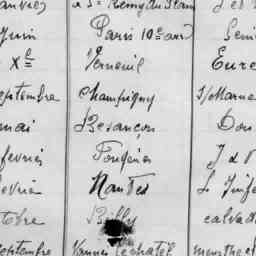 anvier à St Rémy du Plain
Juin Paris 10e arr Sein
Xe Verneuil Eure
Septembre Champigny S/Marne
mai Besançon Dou
février Fougères I & V
évrier Nantes L Infé
ctobre Billy calvado
Septembre Vannes le chatel meurthe et